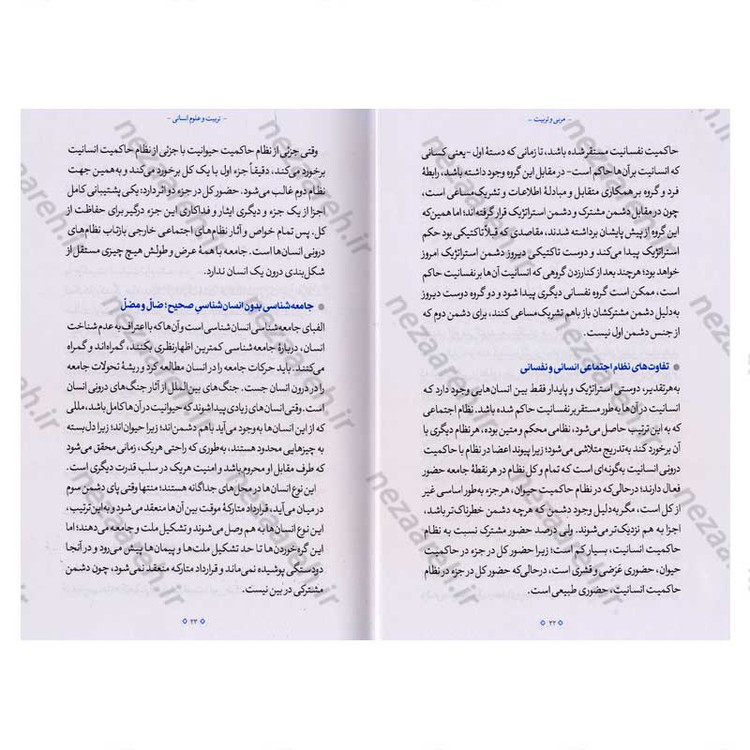 - مربی و تربیت -
حاکمیت نفسانیت مستقر شده باشد، تا زمانی که دستهٔ اول -یعنی کسانی
که انسانیت بر آن‌ها حاکم است- در مقابل این گروه وجود داشته باشد، رابطهٔ
فرد و گروه بر همکاری متقابل و مبادلهٔ اطلاعات و تشریک مساعی است،
چون در مقابل دشمن مشترک و دشمن استراتژیک قرار گرفته‌اند؛ اما همین‌که
این گروه از پیش پایشان برداشته شدند، مقاصدی که قبلاً تاکتیکی بود حکم
استراتژیک پیدا می‌کند و دوست تاکتیکی دیروز دشمن استراتژیک امروز
خواهد بود؛ هرچند بعد از کنار زدن گروهی که انسانیت آن‌ها بر نفسانیت حاکم
است، ممکن است گروه نفسانی دیگری پیدا شود و دو گروه دوست دیروز
به‌دلیل دشمن مشترکشان باز باهم تشریک مساعی کنند، برای دشمن دوم که
از جنس دشمن اول نیست.
تفاوت‌های نظام اجتماعی انسانی و نفسانی
به‌هرتقدیر، دوستی استراتژیک و پایدار فقط بین انسان‌هایی وجود دارد که
انسانیت در آن‌ها به‌طور مستقر بر نفسانیت حاکم شده باشد. نظام اجتماعی
که به این ترتیب حاصل می‌شود، نظامی محکم و متین بوده، هر نظام دیگری با
آن برخورد کند به‌تدریج متلاشی می‌شود؛ زیرا پیوند اعضا در نظام با حاکمیت
درونی انسانیت به‌گونه‌ای است که تمام و کل نظام در هر نقطهٔ جامعه حضور
فعال دارند؛ درحالی‌که در نظام حاکمیت حیوان، هر جزء به‌طور اساسی غیر
از کل است، مگر به‌دلیل وجود دشمن که هرچه دشمن خطرناک‌تر باشد،
اجزا به هم نزدیک‌تر می‌شوند. ولی درصد حضور مشترک نسبت به نظام
حاکمیت انسانیت، بسیار کم است؛ زیرا حضور کل در جزء در حاکمیت
حیوان، حضوری عَرَضی و قشری است، درحالی‌که حضور کل در جزء در نظام
حاکمیت انسانیت، حضوری طبیعی است.
۲۲
- تربیت و علوم انسانی -
وقتی جزئی از نظام حاکمیت حیوانیت با جزئی از نظام حاکمیت انسانیت
برخورد می‌کند، دقیقاً جزء اول با یک کل برخورد می‌کند و به همین جهت
نظام دوم غالب می‌شود. حضور کل در جزء دو اثر دارد: یکی پشتیبانی کامل
اجزا از یک جزء و دیگری ایثار و فداکاری این جزء درگیر برای حفاظت از
کل. پس تمام خواص و آثار نظام‌های اجتماعی خارجی بازتاب نظام‌های
درونی انسان‌ها است. جامعه با همهٔ عرض و طولش هیچ چیزی مستقل از
شکل‌بندی درون یک انسان ندارد.
جامعه‌شناسی بدون انسان‌شناسیِ صحیح؛ ضالّ و مضلّ
الفبای جامعه‌شناسی انسان‌شناسی است و آن‌ها که با اعتراف به عدم شناخت
انسان، دربارهٔ جامعه‌شناسی کمترین اظهارنظری بکنند، گمراه‌اند و گمراه
می‌کنند. باید حرکات جامعه را در انسان مطالعه کرد و ریشهٔ تحولات جامعه
را در درون انسان جست. جنگ‌های بین‌الملل از آثار جنگ‌های درونی انسان
است. وقتی انسان‌های زیادی پیدا شوند که حیوانیت در آن‌ها کامل باشد، مللی
که از این انسان‌ها به‌وجود می‌آید باهم دشمن‌اند؛ زیرا حیوان‌اند؛ زیرا دل‌بسته
به چیزهایی محدود هستند، به‌طوری که راحتی هریک، زمانی محقق می‌شود
که طرف مقابل او محروم باشد و امنیت هریک در سلب قدرت دیگری است.
این نوع انسان‌ها در محل‌های جداگانه هستند؛ منتها وقتی پای دشمن سوم
در میان می‌آید، قرارداد متارکهٔ موقت بین آن‌ها منعقد می‌شود و به‌این‌ترتیب،
این نوع انسان‌ها به هم وصل می‌شوند و تشکیل ملت و جامعه می‌دهند؛ اما
این گره‌خوردن‌ها تا حد تشکیل ملت‌ها و پیمان‌ها پیش می‌رود و در آنجا
دودستگی پوشیده نمی‌ماند و قرارداد متارکه منعقد نمی‌شود، چون دشمن
مشترکی در بین نیست.
۲۳
nezaareh.ir